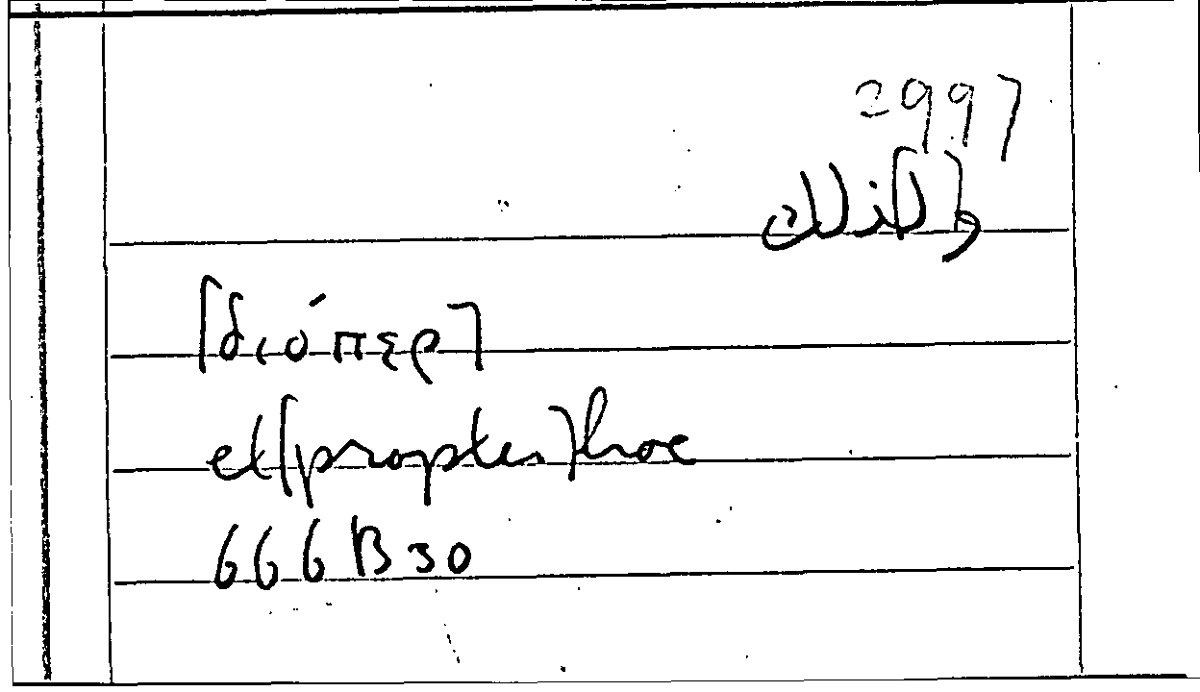 2997
و[لذلك]
[διόπερ]
et [propter] hoc
666 B 30